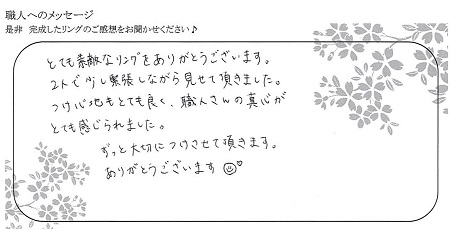 職人へのメッセージ
是非 完成したリングのご感想をお聞かせください♪
とても素敵なリングをありがとうございます。
2人で少し緊張しながら見せて頂きました。
つけ心地もとても良く、職人さんの真心が
とても感じられました。
ずっと大切につけさせて頂きます。
ありがとうございます